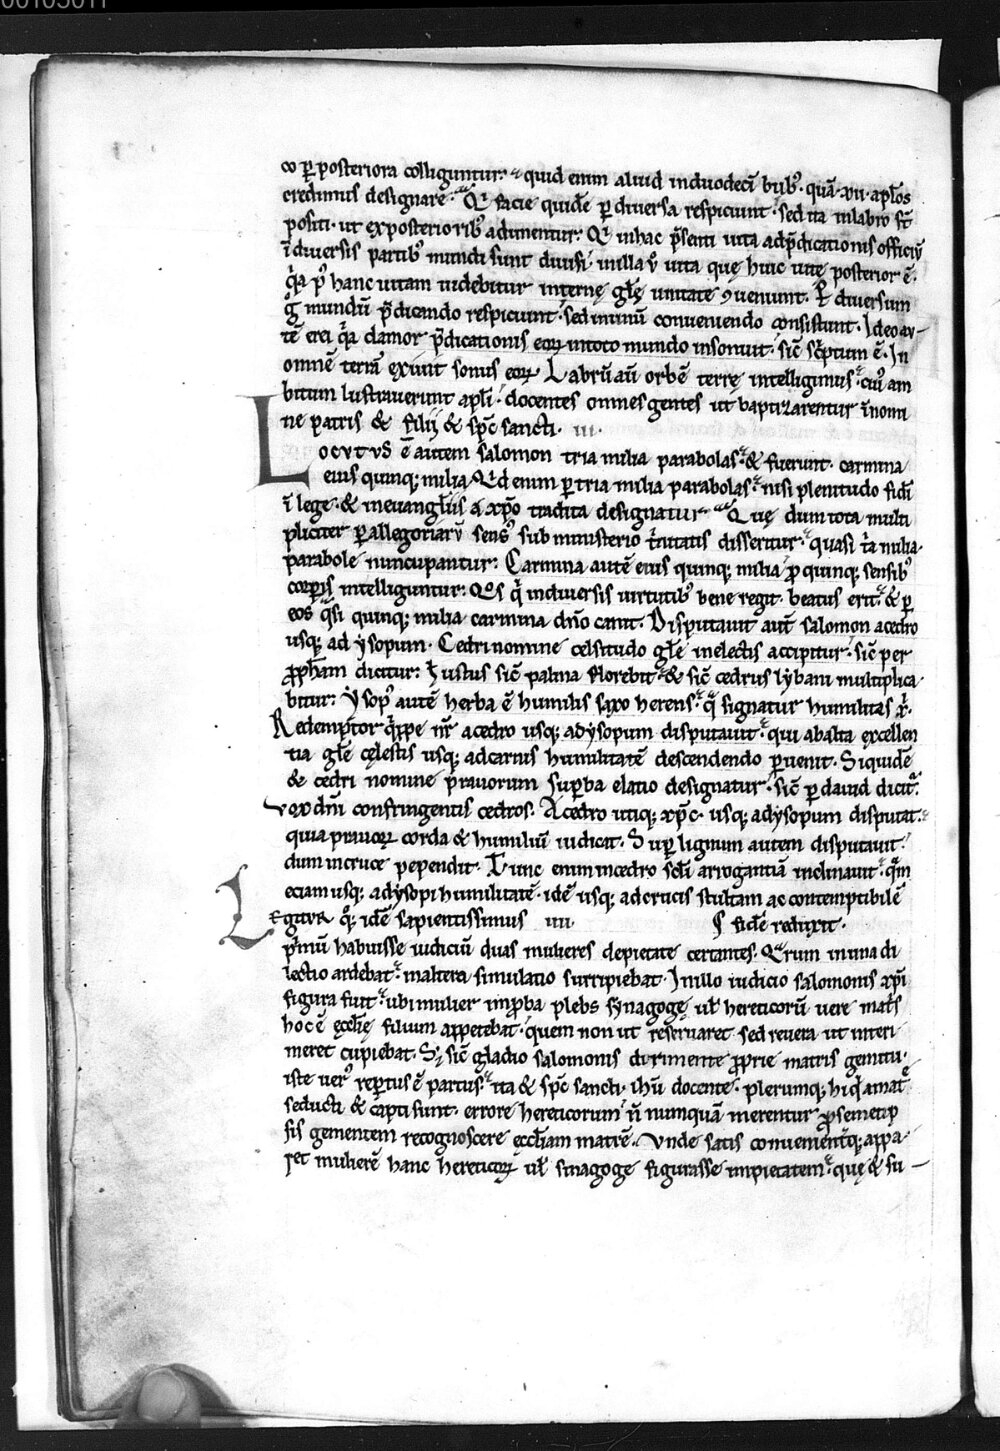 00105011
co ꝑ posteriora colliguntur. quid enim aliud in duodecī bubꝰ. quā .xii. apl̄os
credimus designare. Q̄ facie quidē ꝑ diversa respiciunt. sed ita in labro st̄
positi. ut ex posterioribꝰ adunentur. Q̄ in hac p̄senti uita ad p̄dicationis officiū
ī diuersis partibꝰ mundi sunt diuisi. in illa ů uita quę huic uitę posterior ē.
q̄a pꝰ hanc uitam uidebitur internę gl̄ę unitate ꝯueniunt. Et diuersum
g̊ mundū p̄dicando respiciunt. sed in unū conueniendo consistunt. Ideo au-
tē erei q̄a clamor p̄dicationis eoꝝ in toto mundo insonuit. sic̄ sc̄ptum ē. In
omnē terrā exiuit sonus eoꝝ. Labrū aū orbē terrę intelligimus. cuiꝰ am
bitum lustrauerunt apl̄i. docentes omnes gentes ut baptizarentur ī nomi
ne patris & filii & sp̄c sancti. iii.
Locutus ē autem salomon tria milia parabolas. & fuerunt carmina
eius quinq; milia. Qd enim ꝑ tria milia parabolas. nisi plenitudo fidei
ī lege. & in euangliis a xp̄o tradita designatur. Quę dum tota multi
pliciter ꝑ allegoriarū sensꝰ sub ministerio t̄nitatis disseritur. quasi t̄a milia
parabole nuncupantur. Carmina autē eius quinq; milia p quinq; sensibꝰ
corꝑis intelliguntur. Qos q̇ in diuersis uirtutibꝰ bene regit. beatus erit. & ꝑ
eos q̄si quinq; milia carmina dn̄o canit. Disputauit aut̄ salomon a cedro
usq; ad ysopum. Cedri nomine celsitudo gl̄e in electis accipitur. sic̄ per
ꝓph̄am dicitur. Iustus sic̄ palma florebit. & sic̄ cedrus lybani multiplica
bitur. Ysopꝰ autē herba ē humilis saxo herens. q̄ signatur humilitas x̄.
Redemptor q̇ppe nr̄ a cedro usq; ad ysopum disputauit. qui ab alta excellen
tia gl̄e cęlestis usq; ad carnis humilitatē descendendo ꝑuenit. Siquidē
& cedri nomine p̄uorum suꝑba elatio designatur. sic̄ ꝑ dauid dicit̄.
Vox dn̄i confringentis cedros. A cedro utiq; xp̄c. usq; ad ysopum disputat.
quia prauoꝝ corda & humiliū iudicat. Suꝑ lignum autem disputauit
dum in cruce pependit. Tunc enim in cedro sc̄li arrogantiā inclinauit. q̄m
eciam usq; ad ysopi humilitatē. idē usq; ad crucis stultam ac contemptibilē
Legitur q̊. idē sapientissimus iiii. fidē reduxit.
p̄mū habuisse iudiciū duas mulieres de pietate certantes. Q̄rum in una di
lectio ardebat. in altera simulatio surripiebat. In illo iudicio salomonis xp̄i
figura fuit. ubi mulier imꝓba plebs synagogę ul̄ hereticorū uere mat̄s
hoc ē ęccl̄ię filium appetebat. quem non ut reseruaret sed reuera ut interi
meret cupiebat. S; sic̄ gladio salomonis dirimente ꝓprie matris gemitu.
iste uerꝰ reꝑtus ē partus. ita & sp̄c sancti. ih̄u docente. plerumq; hi q̇ amat̄
seducti & capti sunt. errore hereticorum n̄ nunquā merentur ꝓ semetip
sis gementem recognoscere ęccl̄iam matrē. Vnde satis conuenientq; appa
ret mulierē hanc hereticoꝝ ul̄ sinagogę figurasse impietatem. quę & su-